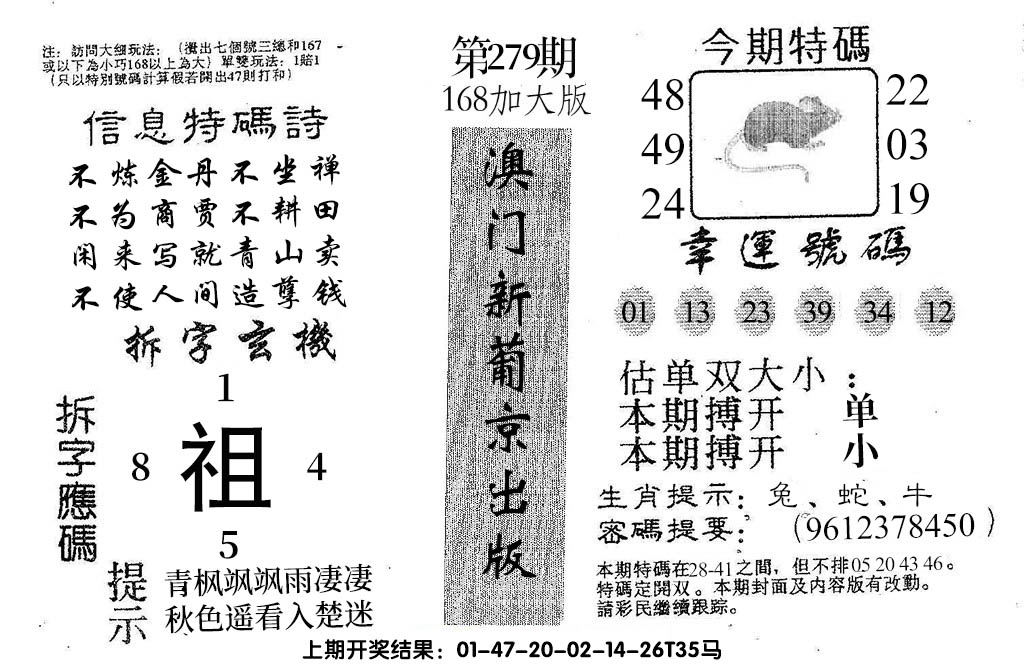 注：訪問大细玩法：（攪出七個號三總和167
或以下為小巧168以上為大）單雙玩法：1賠1
（只以特別號碼計算假若開出47則打和）
信息特碼詩
不炼金丹不坐禅
不为商贾不耕田
闲来写就青山卖
不使人间造孽钱
拆字玄機
拆字應碼
1
8 祖 4
5
提示
青枫飒飒雨凄凄
秋色遥看入楚迷
第279期
168加大版
澳门新葡京出版
今期特碼
48 22
49 03
24 19
幸運號碼
01 13 23 39 34 12
估单双大小：
本期搏开 单
本期搏开 小
生肖提示：兔、蛇、牛
密碼提要：（9612378450）
本期特碼在28-41之間，但不排05 20 43 46。
特碼定開双。本期封面及内容版有改動。
請彩民繼續跟踪。
上期开奖结果：01-47-20-02-14-26T35马